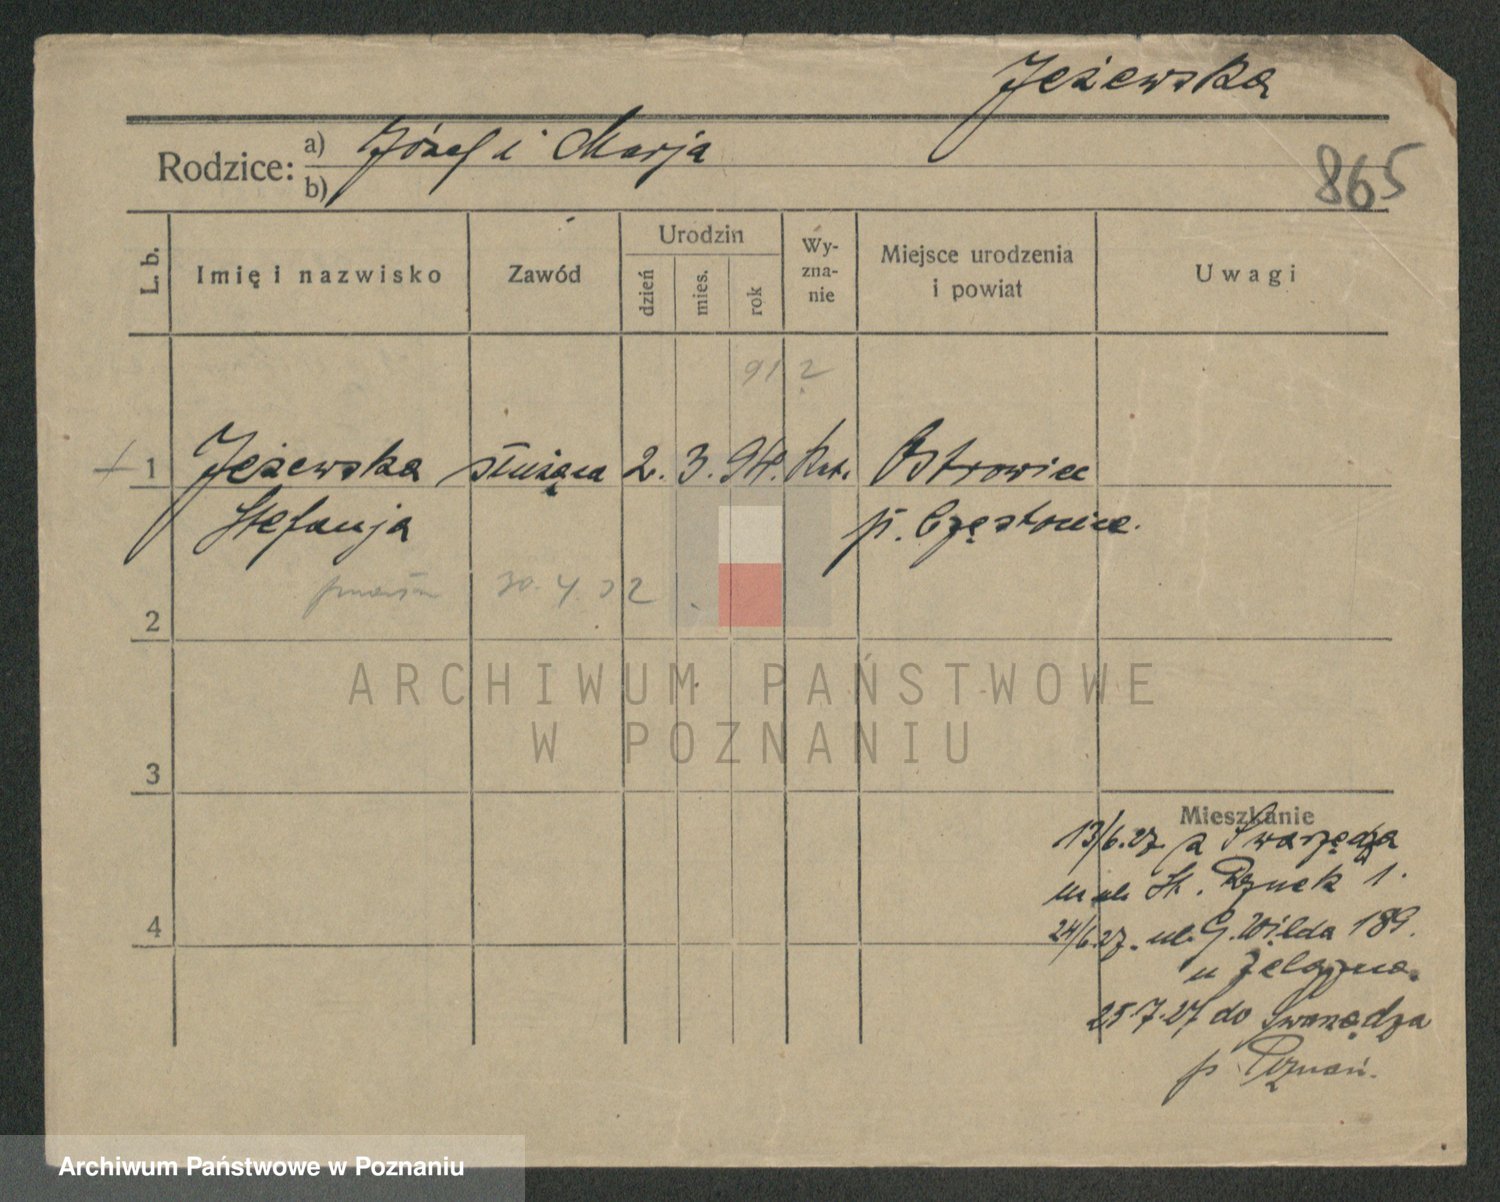 Jeżewska
865
Rodzice: a) Józef i Marja
b)
L. b. Imię i nazwisko Zawód Urodzin dzień mies. rok Wyznanie Miejsce urodzenia i powiat Uwagi
912
1 Jeżewska służąca 2. 3. 94. Kat. Ostrowiec
Stefanja p. Częstochowa.
30.4.32
2
ARCHIWUM PAŃSTWOWE
W POZNANIU
3
Mieszkanie
13/6.27 z Swarzędza
ul. St. Rynek 1.
4
24/6.27. ul. G. Wilda 189.
u Żelazna.
25.7.27 do Swarzędza
p. Poznań.
Archiwum Państwowe w Poznaniu